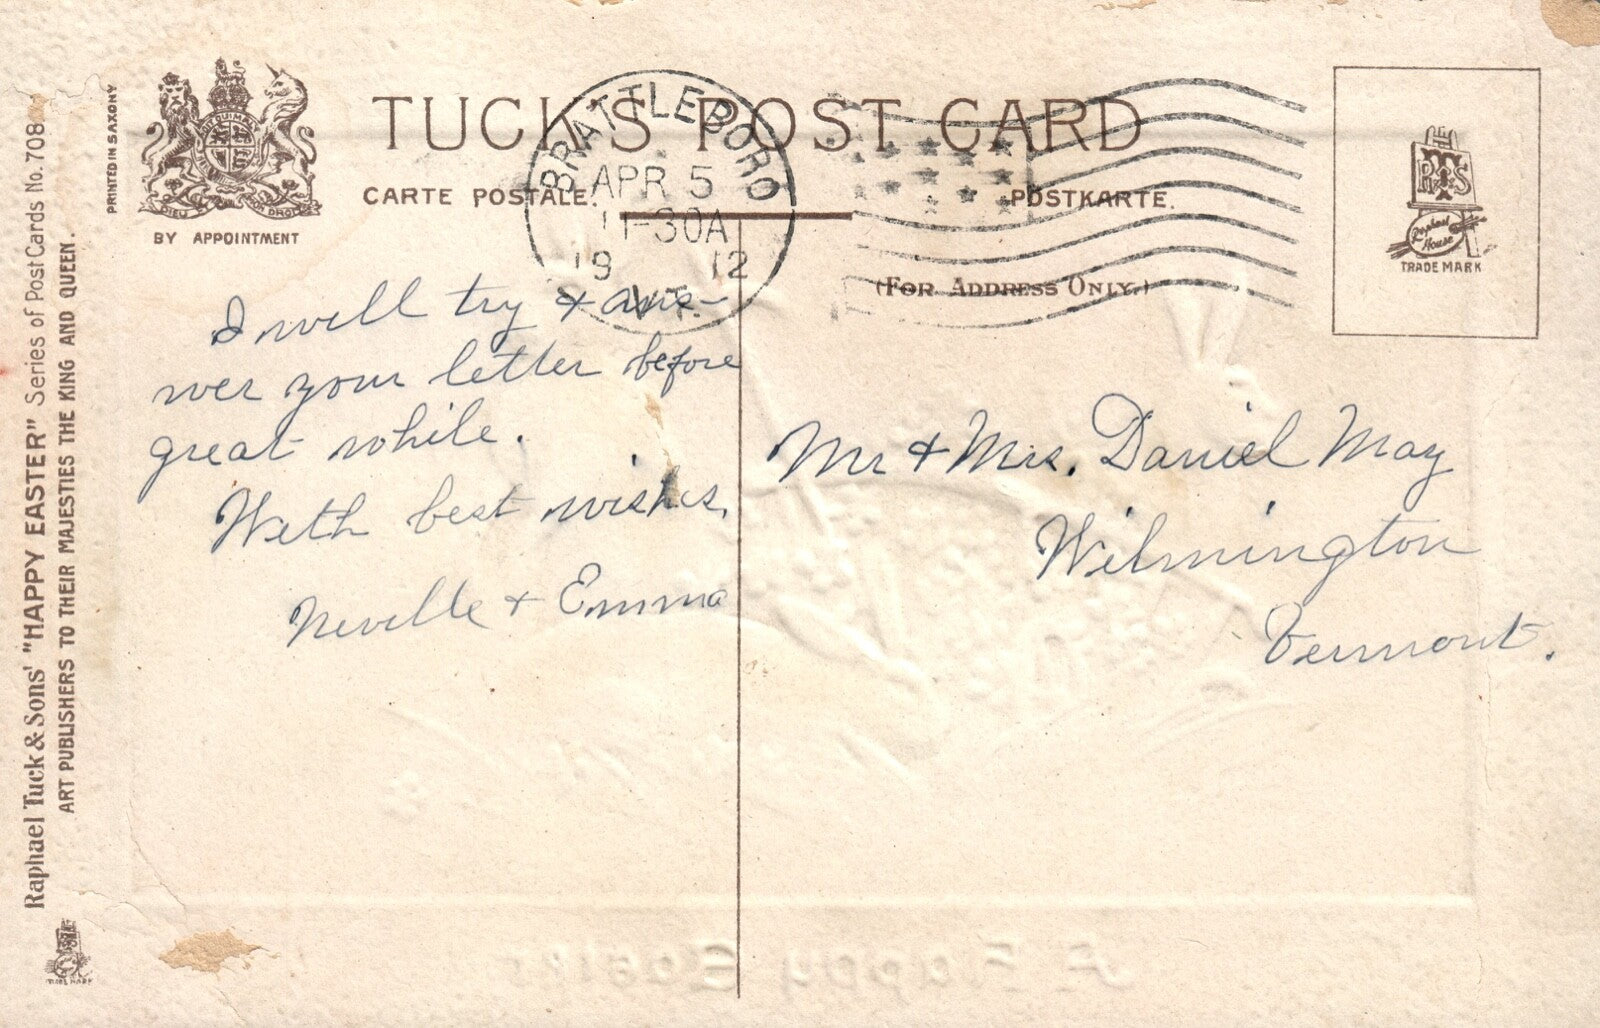 Raphael Tuck & Sons' "HAPPY EASTER" Series of Post Cards No. 708
ART PUBLISHERS TO THEIR MAJESTIES THE KING AND QUEEN.
PRINTED IN SAXONY
BY APPOINTMENT
TUCK'S POST CARD
CARTE POSTALE.
POSTKARTE.
(FOR ADDRESS ONLY.)
BRATTLEBORO
APR 5
11-30A
1912
VT.
RTS
Raphael House
TRADE MARK
I will try & ans-
wer your letter before
great while.
With best wishes,
Neville & Emma
Mr & Mrs. Daniel May
Wilmington
Vermont.
TRADE MARK
A Happy Easter